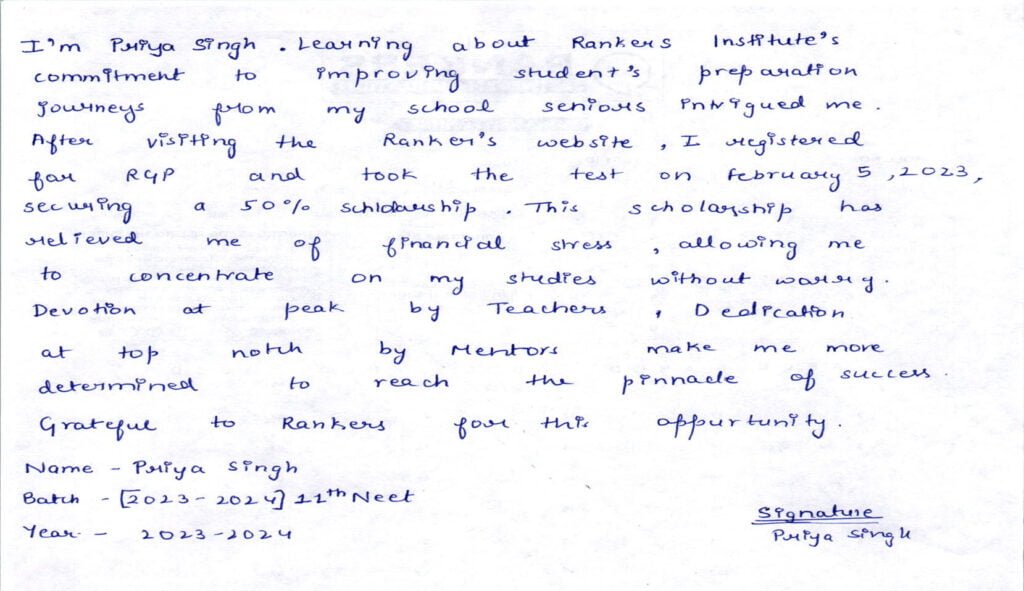 I'm Priya Singh . Learning about Rankers Institute's
commitment to improving student's preparation
journeys from my school seniors intrigued me .
After visiting the Ranker's website , I registered
for RGP and took the test on February 5 , 2023 ,
securing a 50% scholarship . This scholarship has
relieved me of financial stress , allowing me
to concentrate on my studies without worry .
Devotion at peak by Teachers , Dedication
at top notch by Mentors make me more
determined to reach the pinnacle of success .
Grateful to Rankers for this oppurtunity .
Name - Priya Singh
Batch - [2023 - 2024] 11th Neet
Year - 2023-2024
Signature
Priya Singh